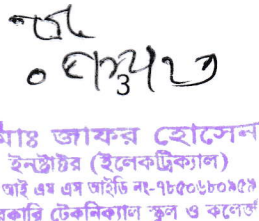 মোঃ জাফর হোসেন
ইনস্ট্রাক্টর (ইলেকট্রিক্যাল)
আই এম এস আইডি নং-৭৮৫০৬৮০৯৫৯
সরকারি টেকনিক্যাল স্কুল ও কলেজ